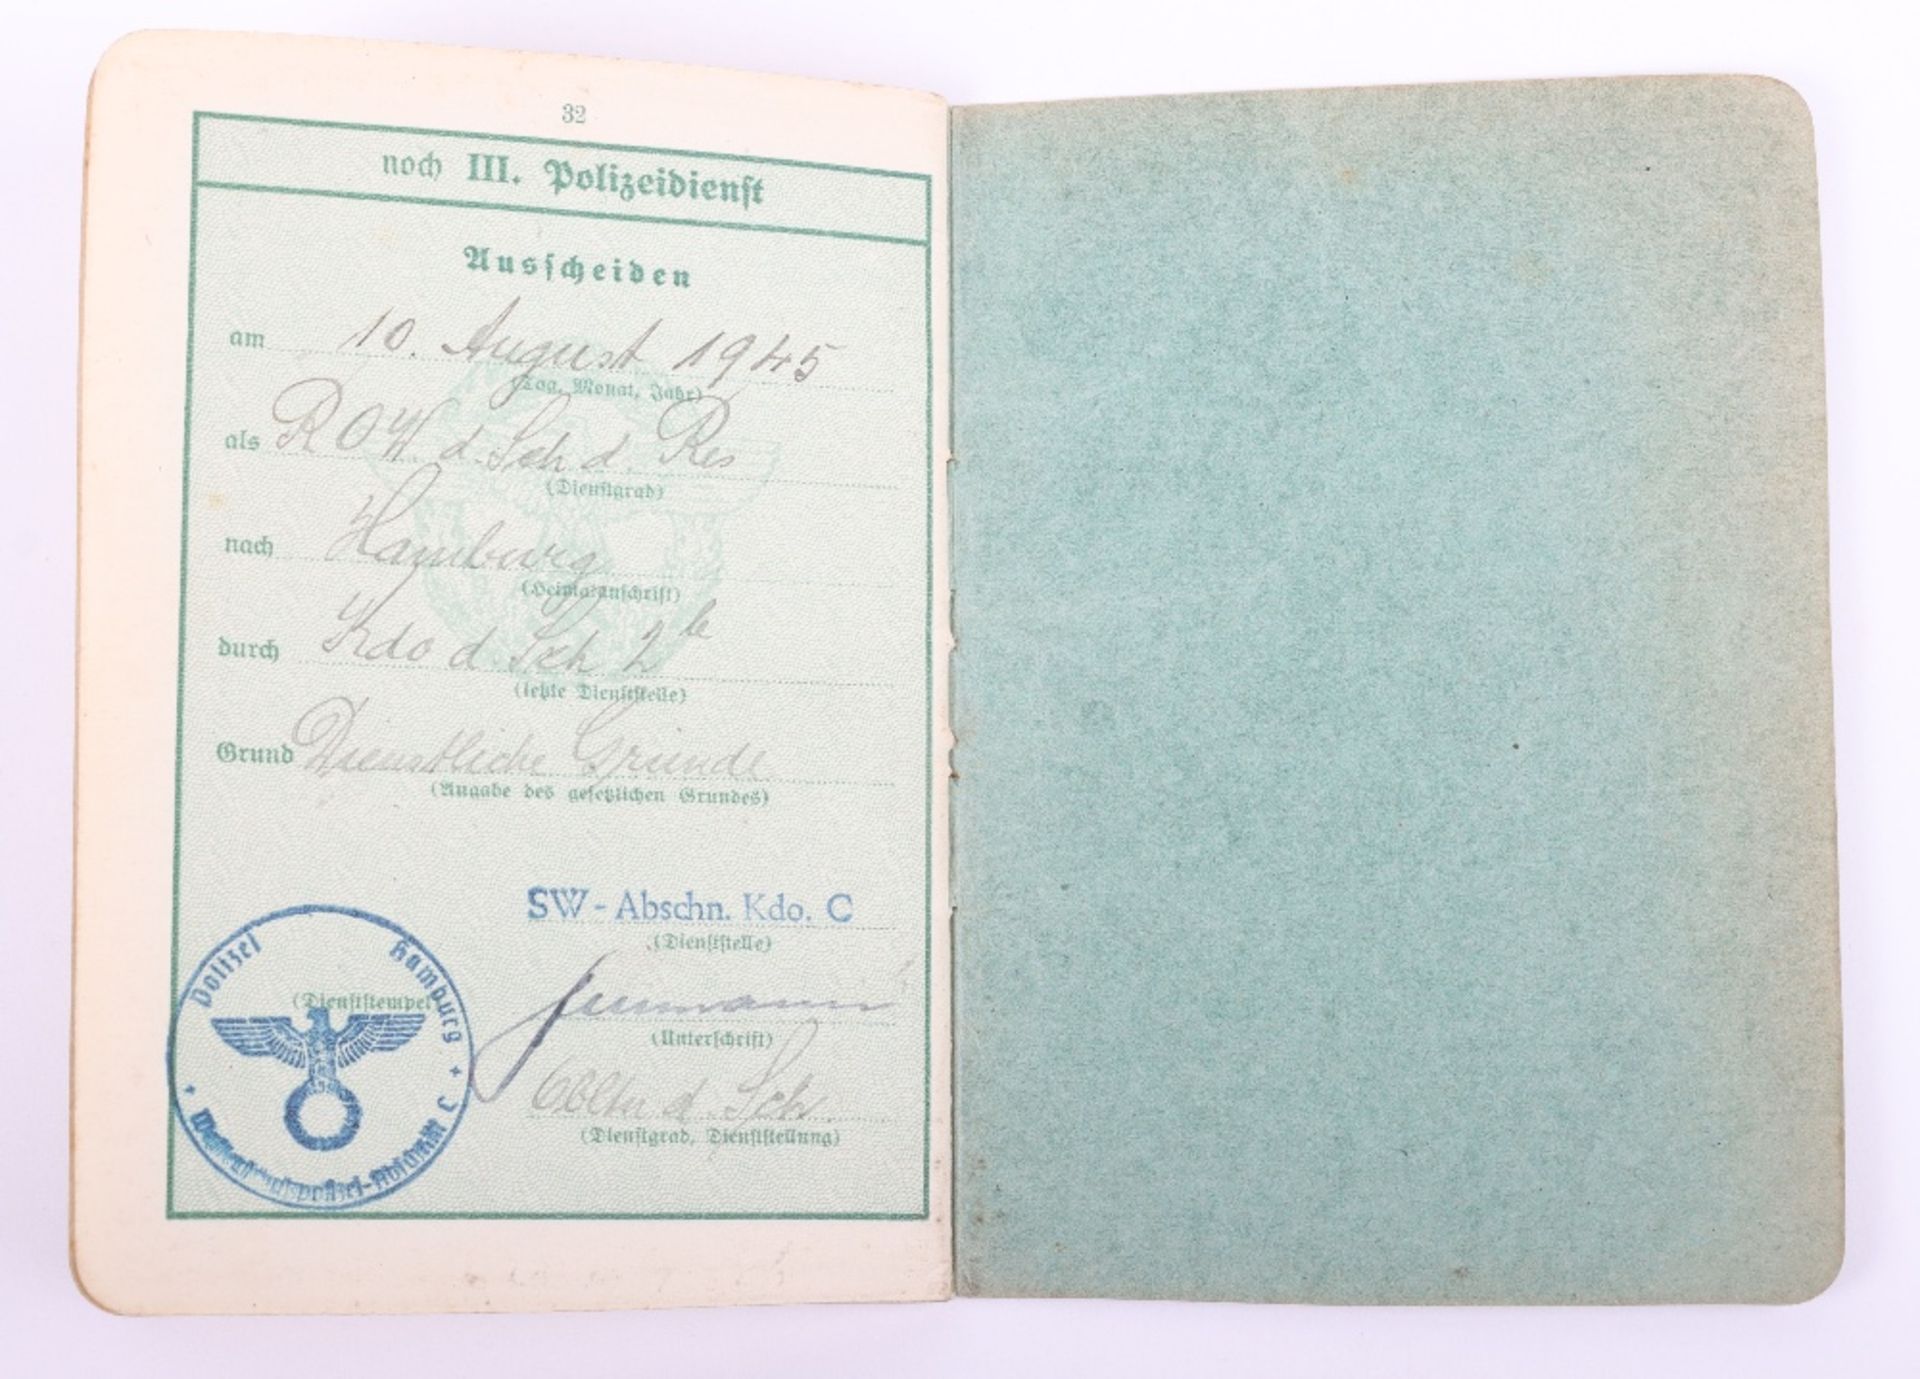 32
noch III. Polizeidienst
Ausscheiden
am 10. August 1945
(Tag, Monat, Jahr)
als R O W. d. Sch d. Res
(Dienstgrad)
nach Hamburg
(Heimatanschrift)
durch Kdo d. Sch
(letzte Dienststelle)
Grund Dienstliche Gründe
(Angabe des gesetzlichen Grundes)
SW-Abschn. Kdo. C
(Dienststelle)
(Dienststempel)
(Unterschrift)
d. Sch.
(Dienstgrad, Dienststellung)
Polizei Hamburg